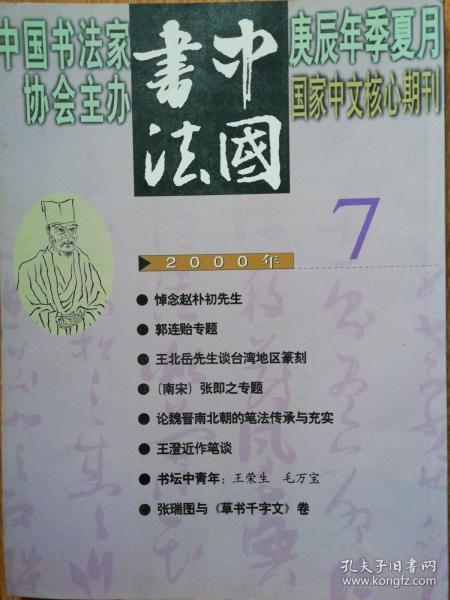 中国书法家
协会主办
中國
書法
庚辰年季夏月
国家中文核心期刊
7
2000年
● 悼念赵朴初先生
● 郭连贻专题
● 王北岳先生谈台湾地区篆刻
● (南宋) 张即之专题
● 论魏晋南北朝的笔法传承与充实
● 王澄近作笔谈
● 书坛中青年: 王荣生 毛万宝
● 张瑞图与《草书千字文》卷
孔夫子旧书网
www.kongfz.com